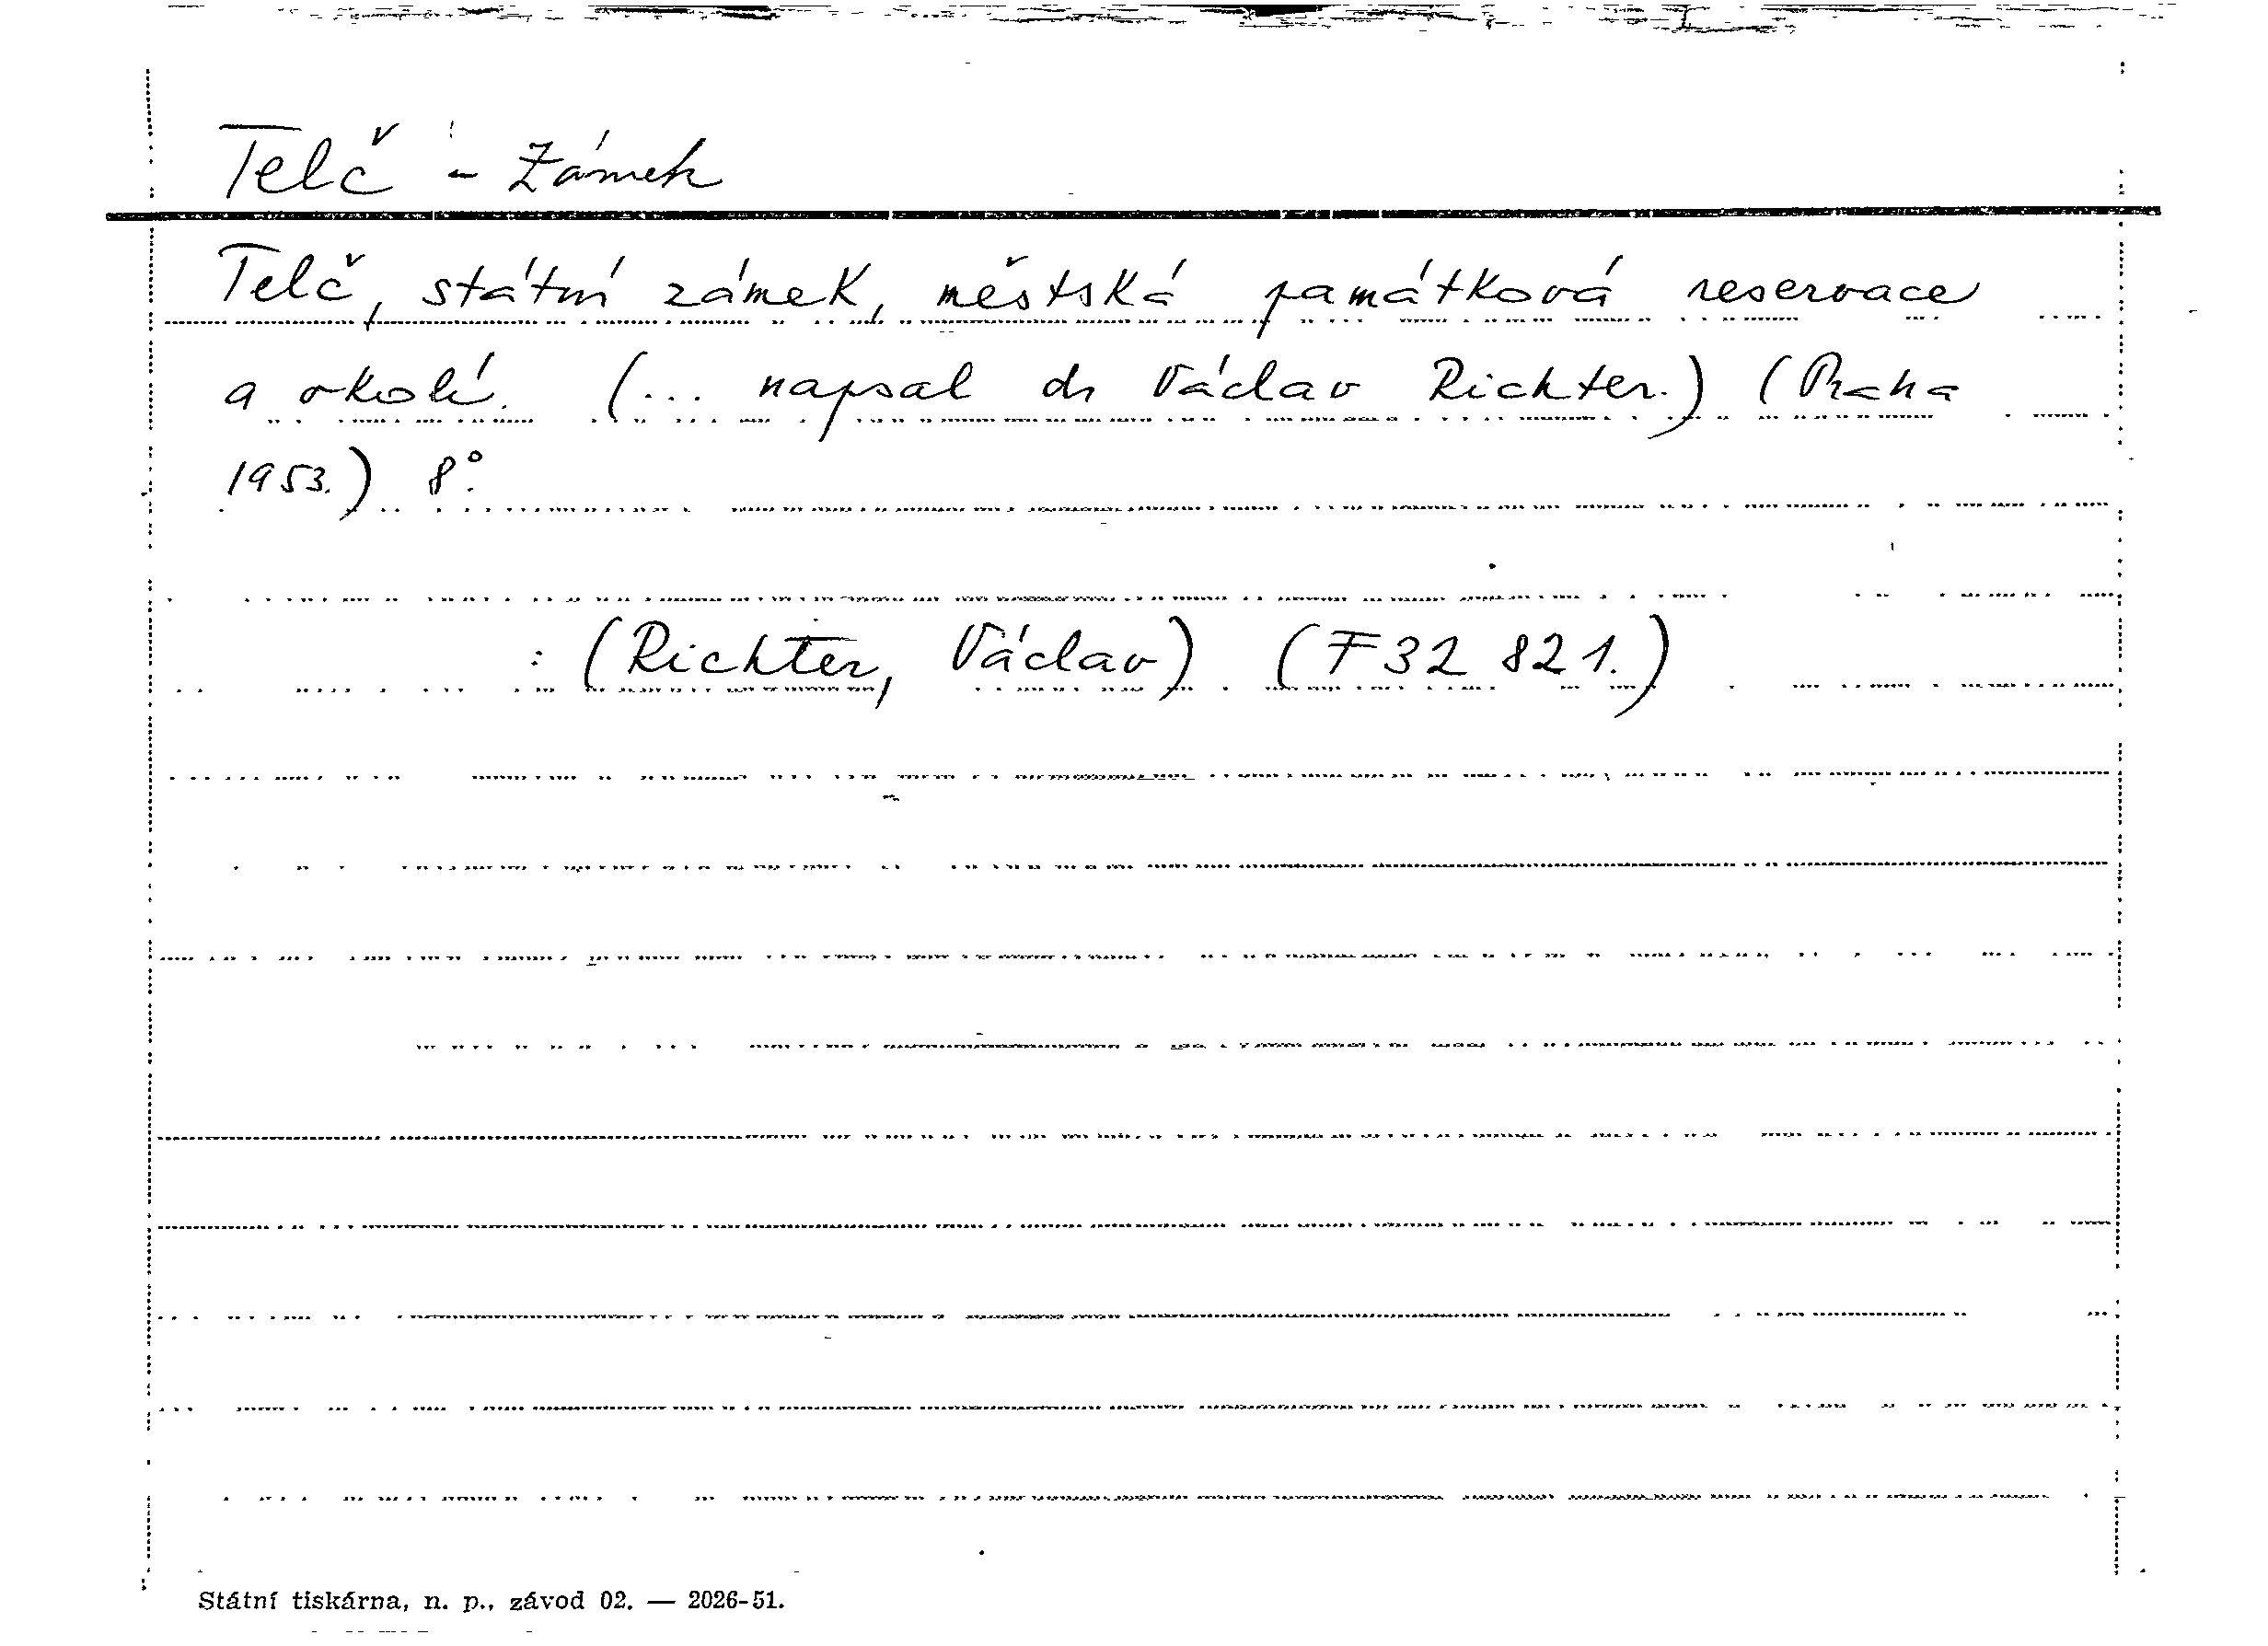 Telč - Zámek
Telč, státní zámek, městská památková reservace
a okolí. (... napsal dr Václav Richter.) (Praha
1953.) 8°.
: (Richter, Václav) (F 32 821.)
Státní tiskárna, n. p., závod 02. — 2026-51.